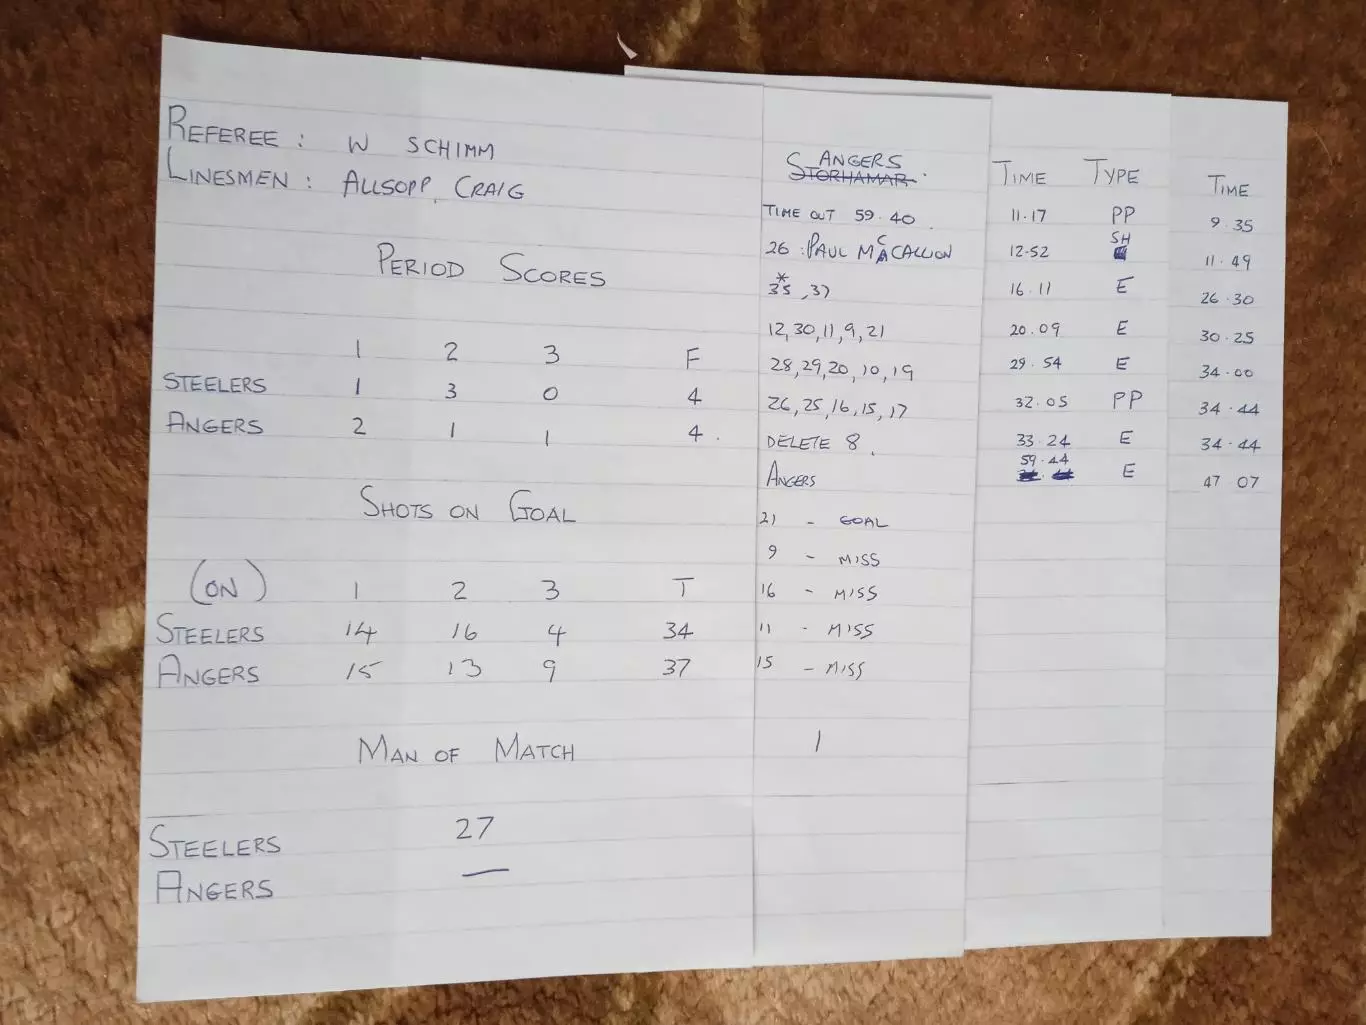 REFEREE : W SCHIMM
LINESMEN : ALLSOPP, CRAIG
PERIOD SCORES
1 2 3 F
STEELERS 1 3 0 4
ANGERS 2 1 1 4.
SHOTS ON GOAL
(ON) 1 2 3 T
STEELERS 14 16 4 34
ANGERS 15 13 9 37
MAN OF MATCH
STEELERS 27
ANGERS —
ANGERS
STORHAMAR.
TIME OUT 59.40
26 : PAUL McCALLION
*
35, 37
12, 30, 11, 9, 21
28, 29, 20, 10, 19
26, 25, 16, 15, 17
DELETE 8.
ANGERS
21 - GOAL
9 - MISS
16 - MISS
11 - MISS
15 - MISS
1
TIME TYPE
11.17 PP
12.52 SH
16.11 E
20.09 E
29.54 E
32.05 PP
33.24 E
59.44 E
TIME
9.35
11.49
26.30
30.25
34.00
34.44
34.44
47 07